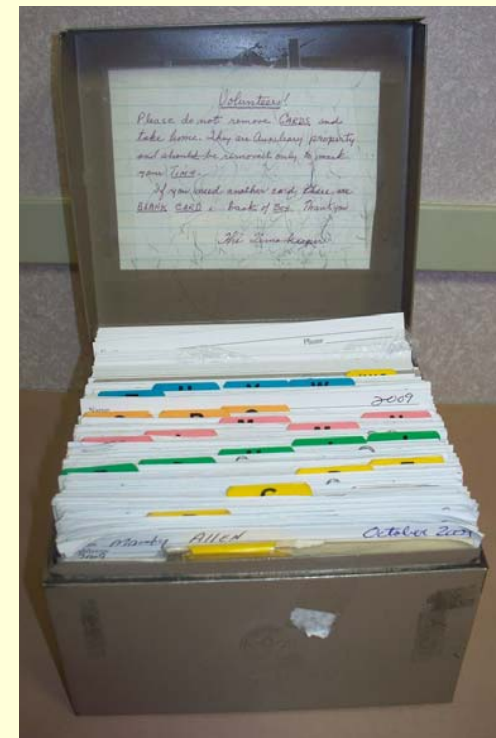 Volunteers!
Please do not remove CARDS and
take home. They are Auxiliary property
and should be removed only to mark
your TIME.
If you need another card, there are
BLANK CARD back of BOX. Thank you
The Time keeper
Phone
U M W
2009
Name
R
M N
G
Allen October